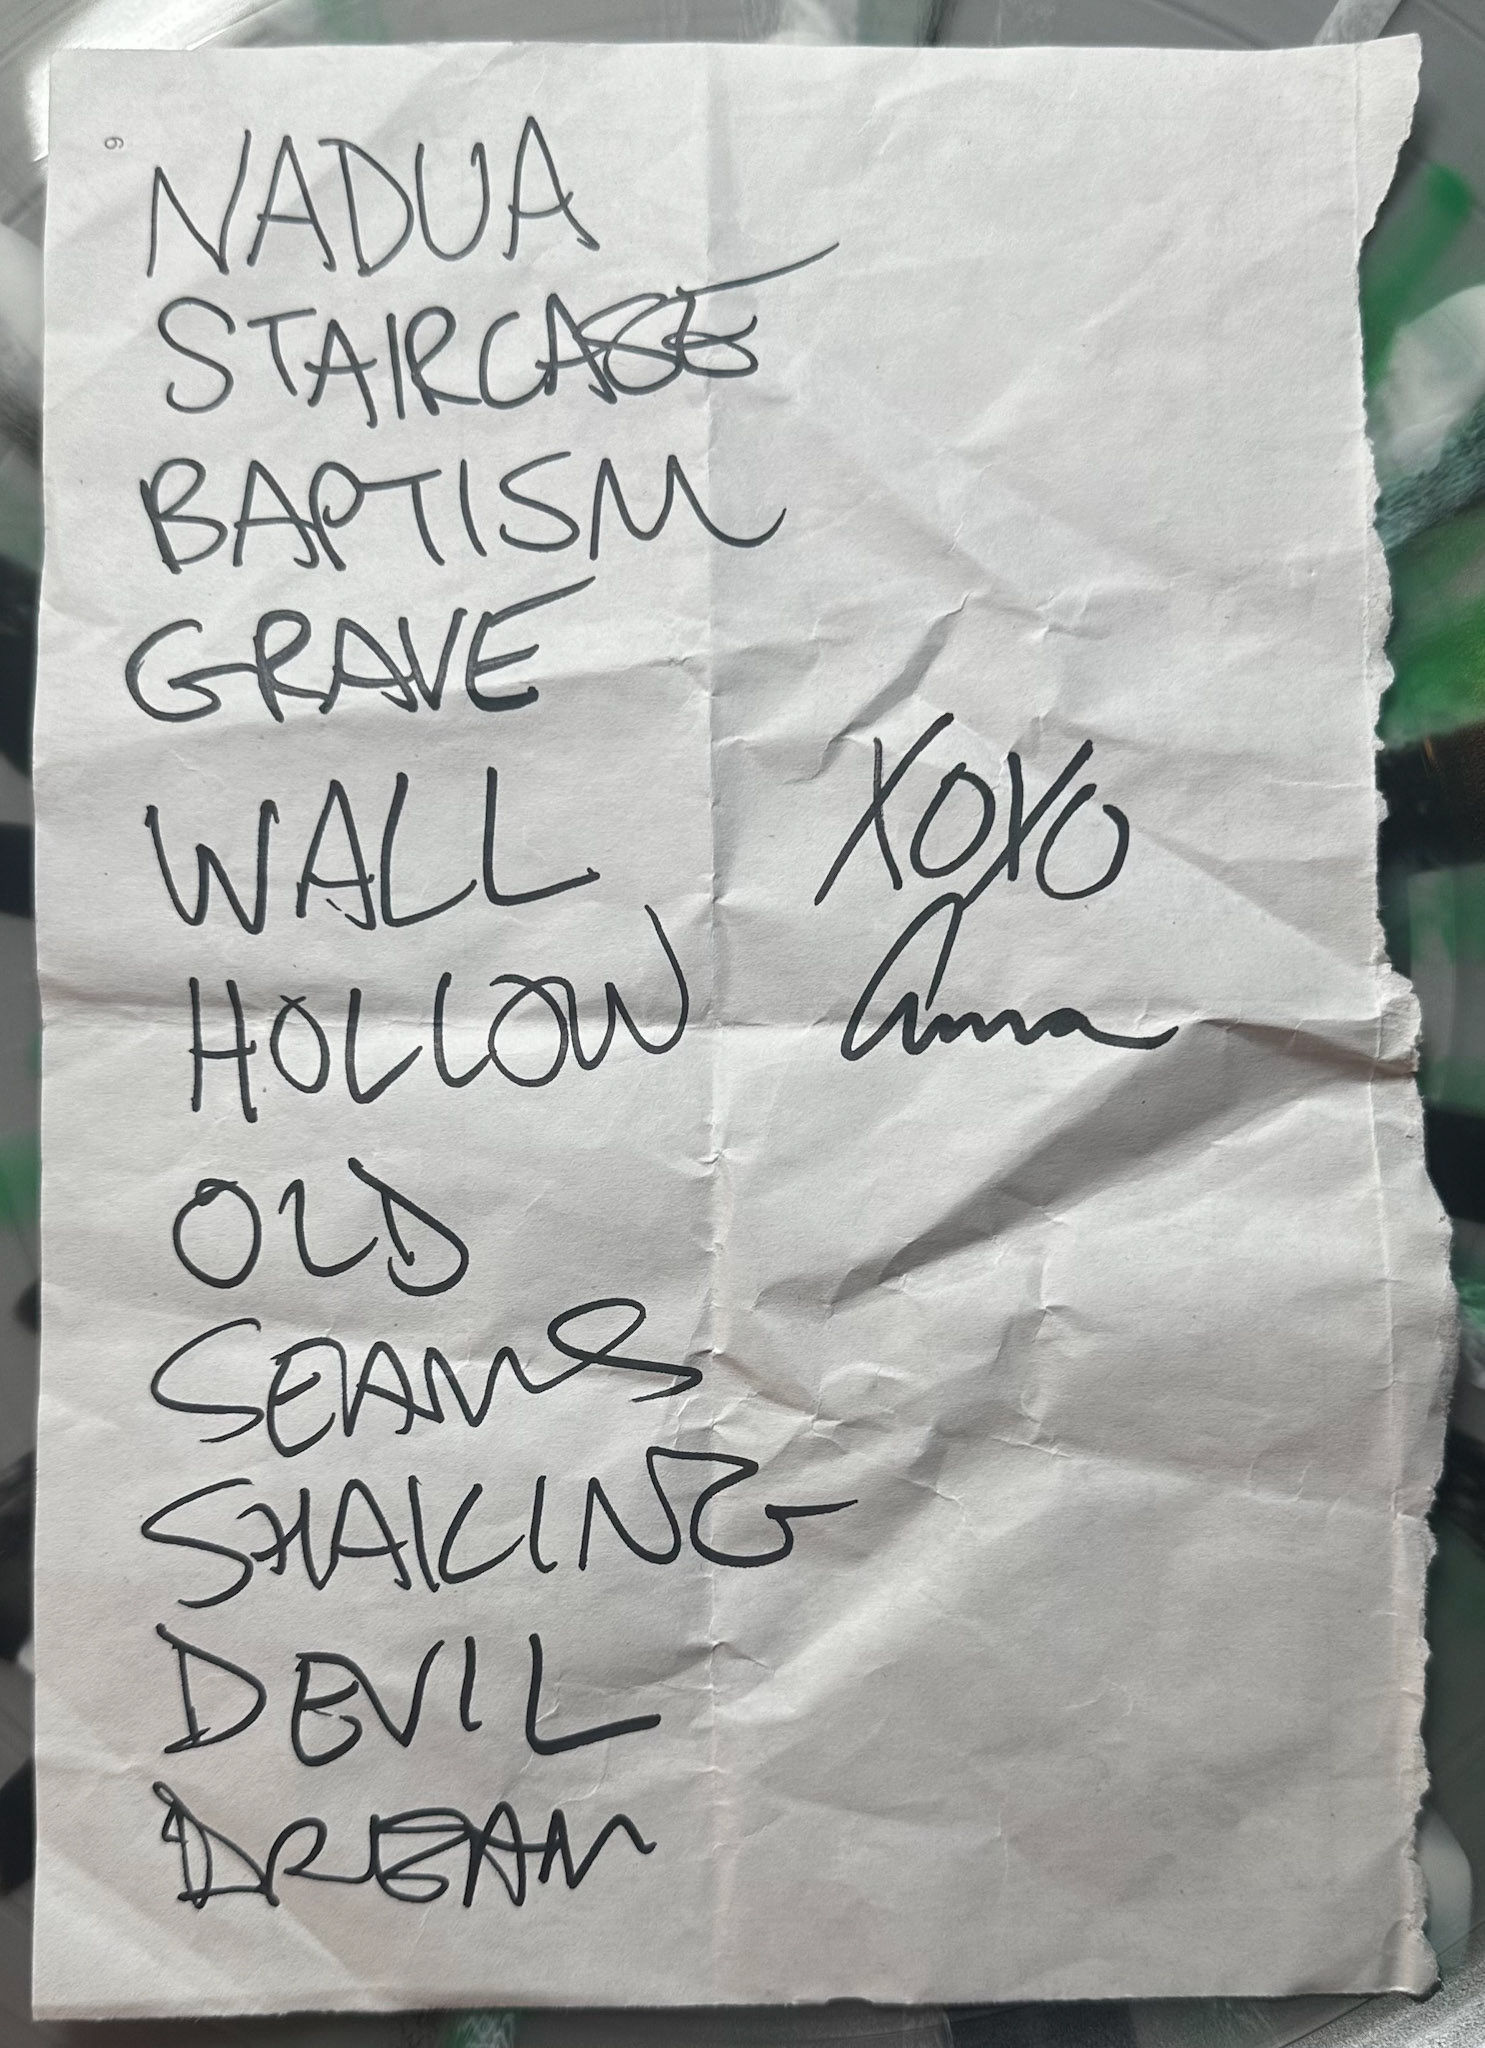 6
NADUA
STAIRCASE
BAPTISM
GRAVE
WALL
XOXO
HOLLOW
Anna
OLD
SEAMS
SHAKING
DEVIL
DREAM